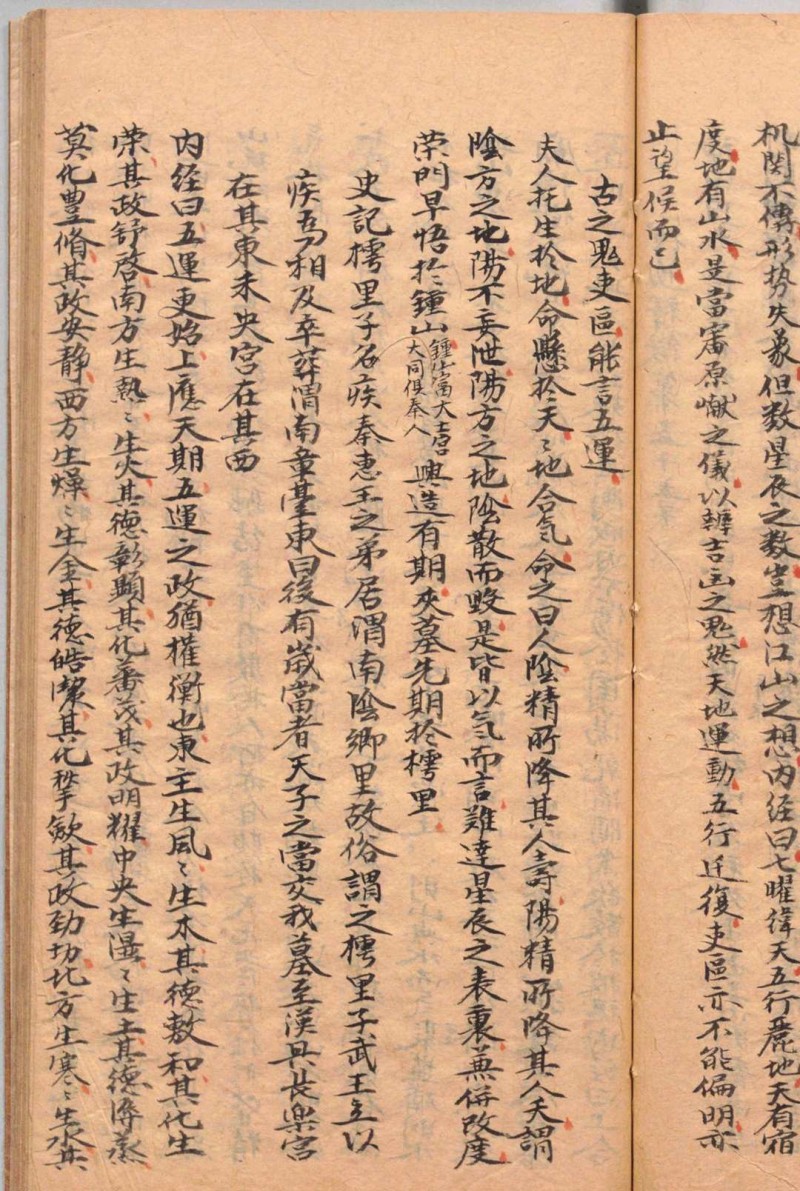 机関不傳形势失蒙但数星辰之数豈想江山之想内经曰七曜緯天五行麗地天有宿
度地有山水是當審原巘之儀以辨吉凶之鬼然天地運動五行迁復吏區亦不能偏明亦
止望候而已
古之鬼吏區能言五運
夫人托生於地命懸於天〻地合気命之曰人陰精所降其人壽陽精所降其人夭謂
陰方之地陽不妄泄陽方之地陰散而毀是皆以気而言難達星辰之表裏兼併改度
荣門早悟於鍾山
大同俱奉人
興造有期夾墓先期於樗里
史記樗里子名疾秦恵王之弟居渭南陰鄉里故俗謂之樗里子武王立以
疾為相及卒葬渭南章臺東曰後有歲當者天子之當交我墓至漢具長楽宮
在其東未央宮在其西
内经曰五運更始上應天期五運之政猶權衡也東主生風〻生木其徳敷和其化生
荣其政舒啓南方生熱〻生火其徳彰顯其化蕃茂其政明耀中央生濕〻生土其徳溽蒸
其化豊脩其政安静西方生燥〻生金其徳皓潔其化揫歛其政劲切北方生寒〻生水其